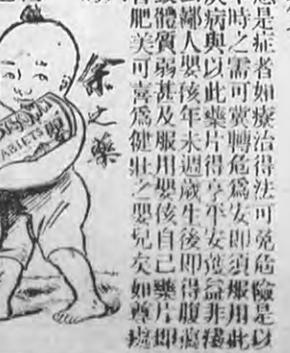 是症者如療治得法可免危險是以
時之需可冀轉危爲安即須服用此
病與以此藥片得享平安獲益非淺
鄙人嬰孩年未週歲生後即得腹瀉
體質弱甚及服用嬰孩自己藥片即
肥美可喜爲健壯之嬰兒矣如尊
余之藥
ABLETS